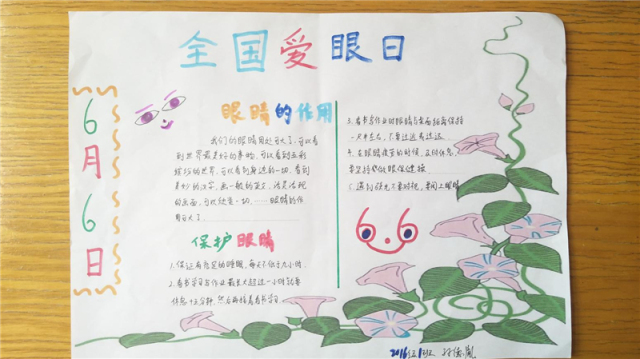 全国爱眼日
6月6日
眼睛的作用
我们的眼睛用处可大了,可以看
到世界最美好的事物,可以看到五彩
缤纷的世界,可以看到身边的一切,看到
美妙的文字,
的画面,可以
用可大了
保护眼睛
1.保证有充足的睡眠,每天不低于九小时.
2.看书学习写作业最长不超过一小时就要
休息十五分钟,然后再接着看书学习.
3.看书写作业时眼睛与桌面距离保持
一尺半左右,不要过近或过远.
4.在眼睛疲劳的时候,及时休息,
要坚持做好眼保健操
5.遇到强光不要对视,要闭上眼睛
2016级1班